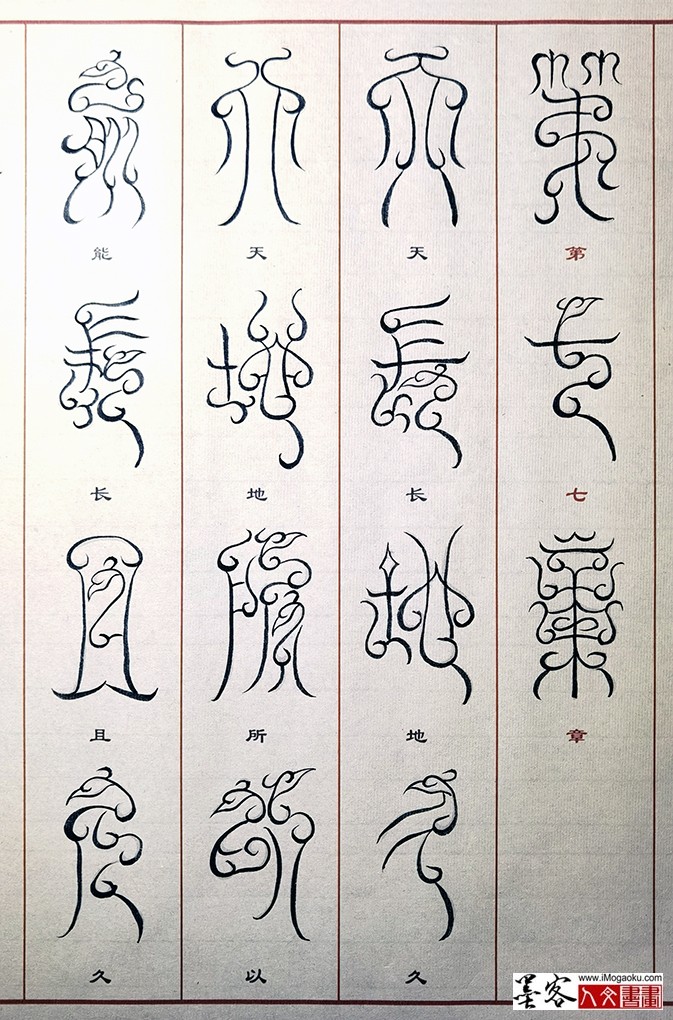 第七章
天长地久
天地所以
能长且久
www.iMogaoku.com
墨客
人文書畫